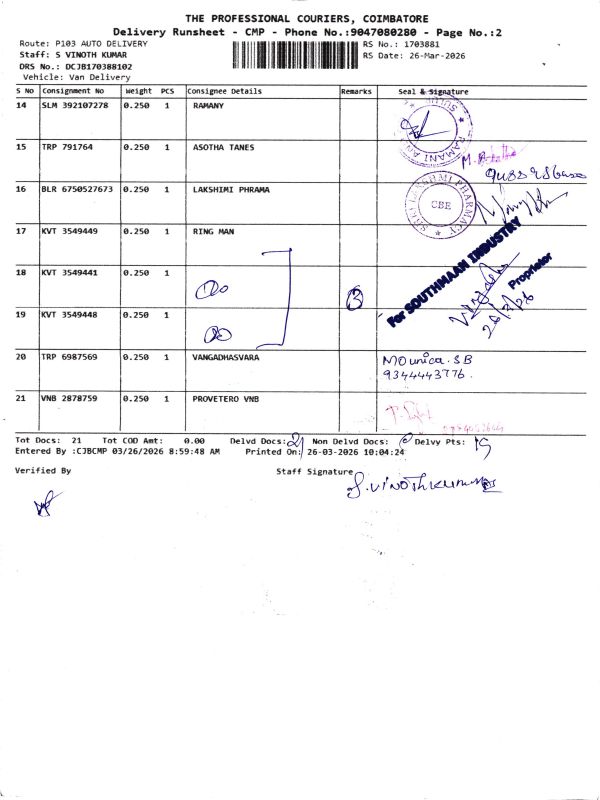 THE PROFESSIONAL COURIERS, COIMBATORE
Delivery Runsheet - CMP - Phone No.:9047080280 - Page No.:2
Route: P103 AUTO DELIVERY
Staff: S VINOTH KUMAR
DRS No.: DCJB170388102
Vehicle: Van Delivery
RS No.: 1703881
RS Date: 26-Mar-2026
S No Consignment No Weight PCS Consignee Details Remarks Seal & Signature
14 SLM 392107278 0.250 1 RAMANY
15 TRP 791764 0.250 1 ASOTHA TANES
16 BLR 6750527673 0.250 1 LAKSHIMI PHRAMA
SRI LAKSHMI PHARMACY
CBE
17 KVT 3549449 0.250 1 RING MAN
18 KVT 3549441 0.250 1
3
For SOUTHMAAN INDUSTRY
Proprietor
26/3/26
19 KVT 3549448 0.250 1
20 TRP 6987569 0.250 1 VANGADHASVARA
Mounica.SB
9344443776.
21 VNB 2878759 0.250 1 PROVETERO VNB
Tot Docs: 21 Tot COD Amt: 0.00 Delvd Docs: 21 Non Delvd Docs: 0 Delvy Pts: 19
Entered By :CJBCMP 03/26/2026 8:59:48 AM Printed On: 26-03-2026 10:04:24
Verified By Staff Signature
S.VINOTHKUMAR